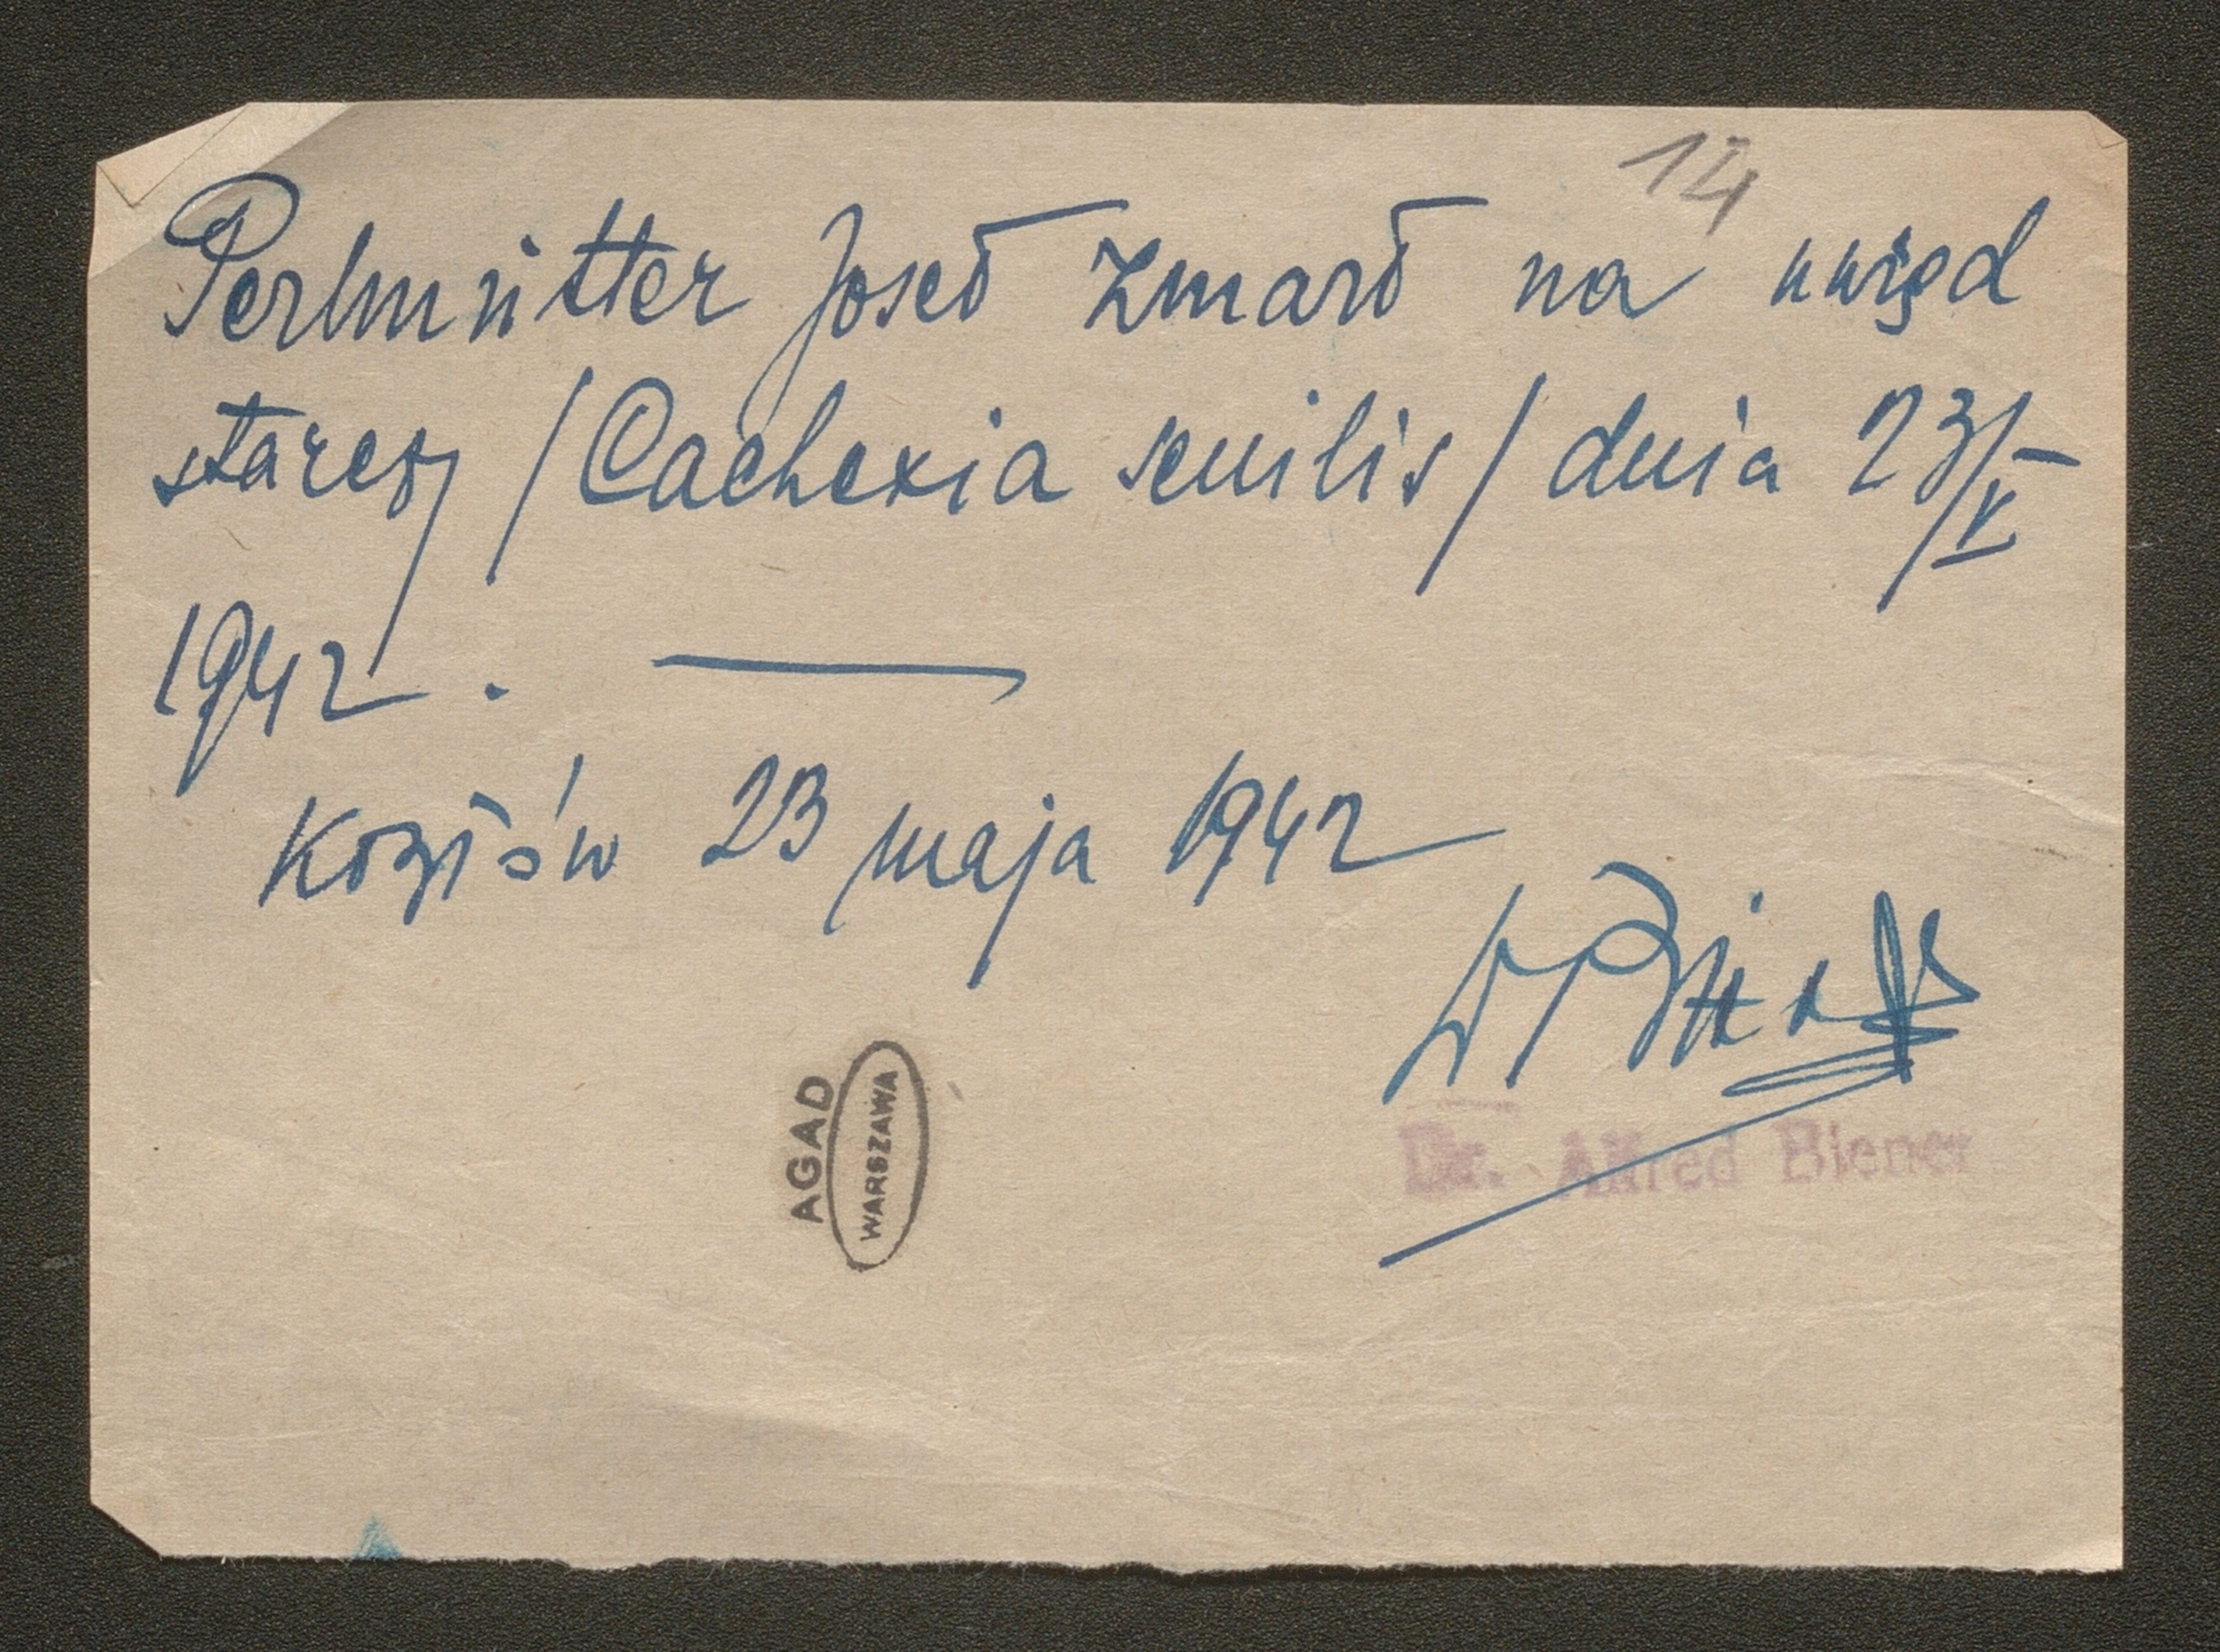 14
Perlmütter Josef zmarł na uwiąd
starczy /Cachexia senilis/ dnia 23/V
1942. —
Kozłów 23 maja 1942
Dr Biener
Dr. Alfred Biener
AGAD
WARSZAWA